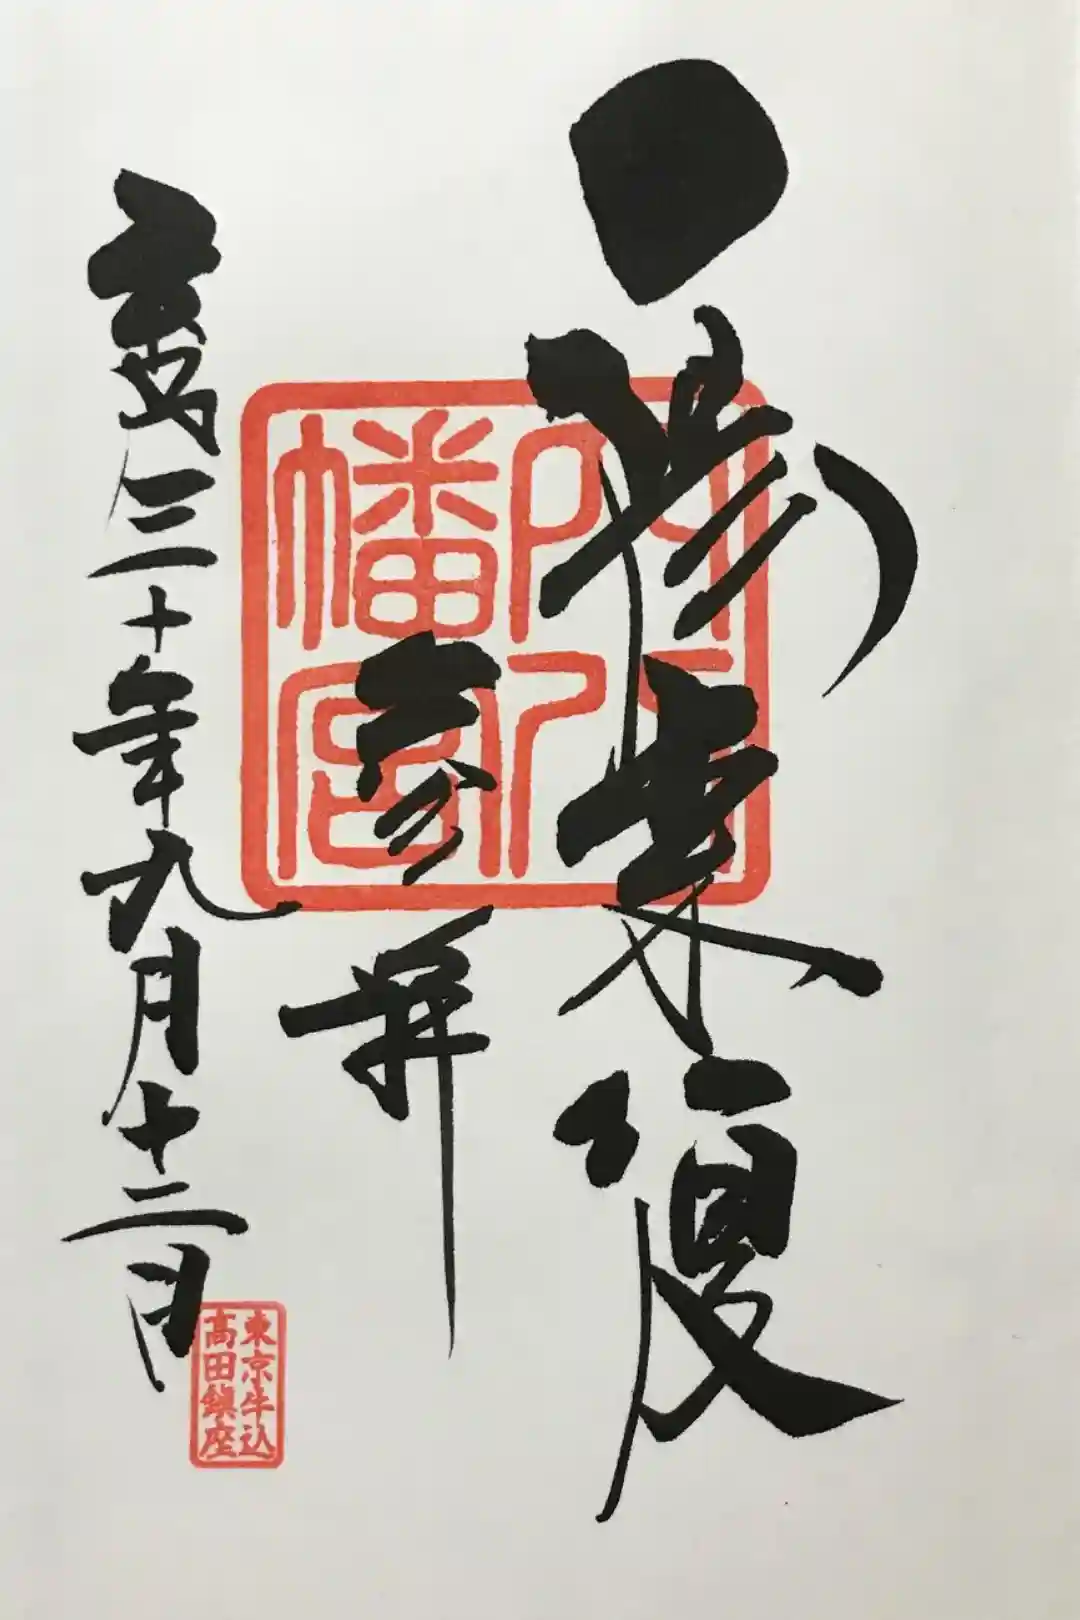 一陽來復
穴八幡宮
参拝
平成三十年九月十二日
東京牛込
高田鎭座